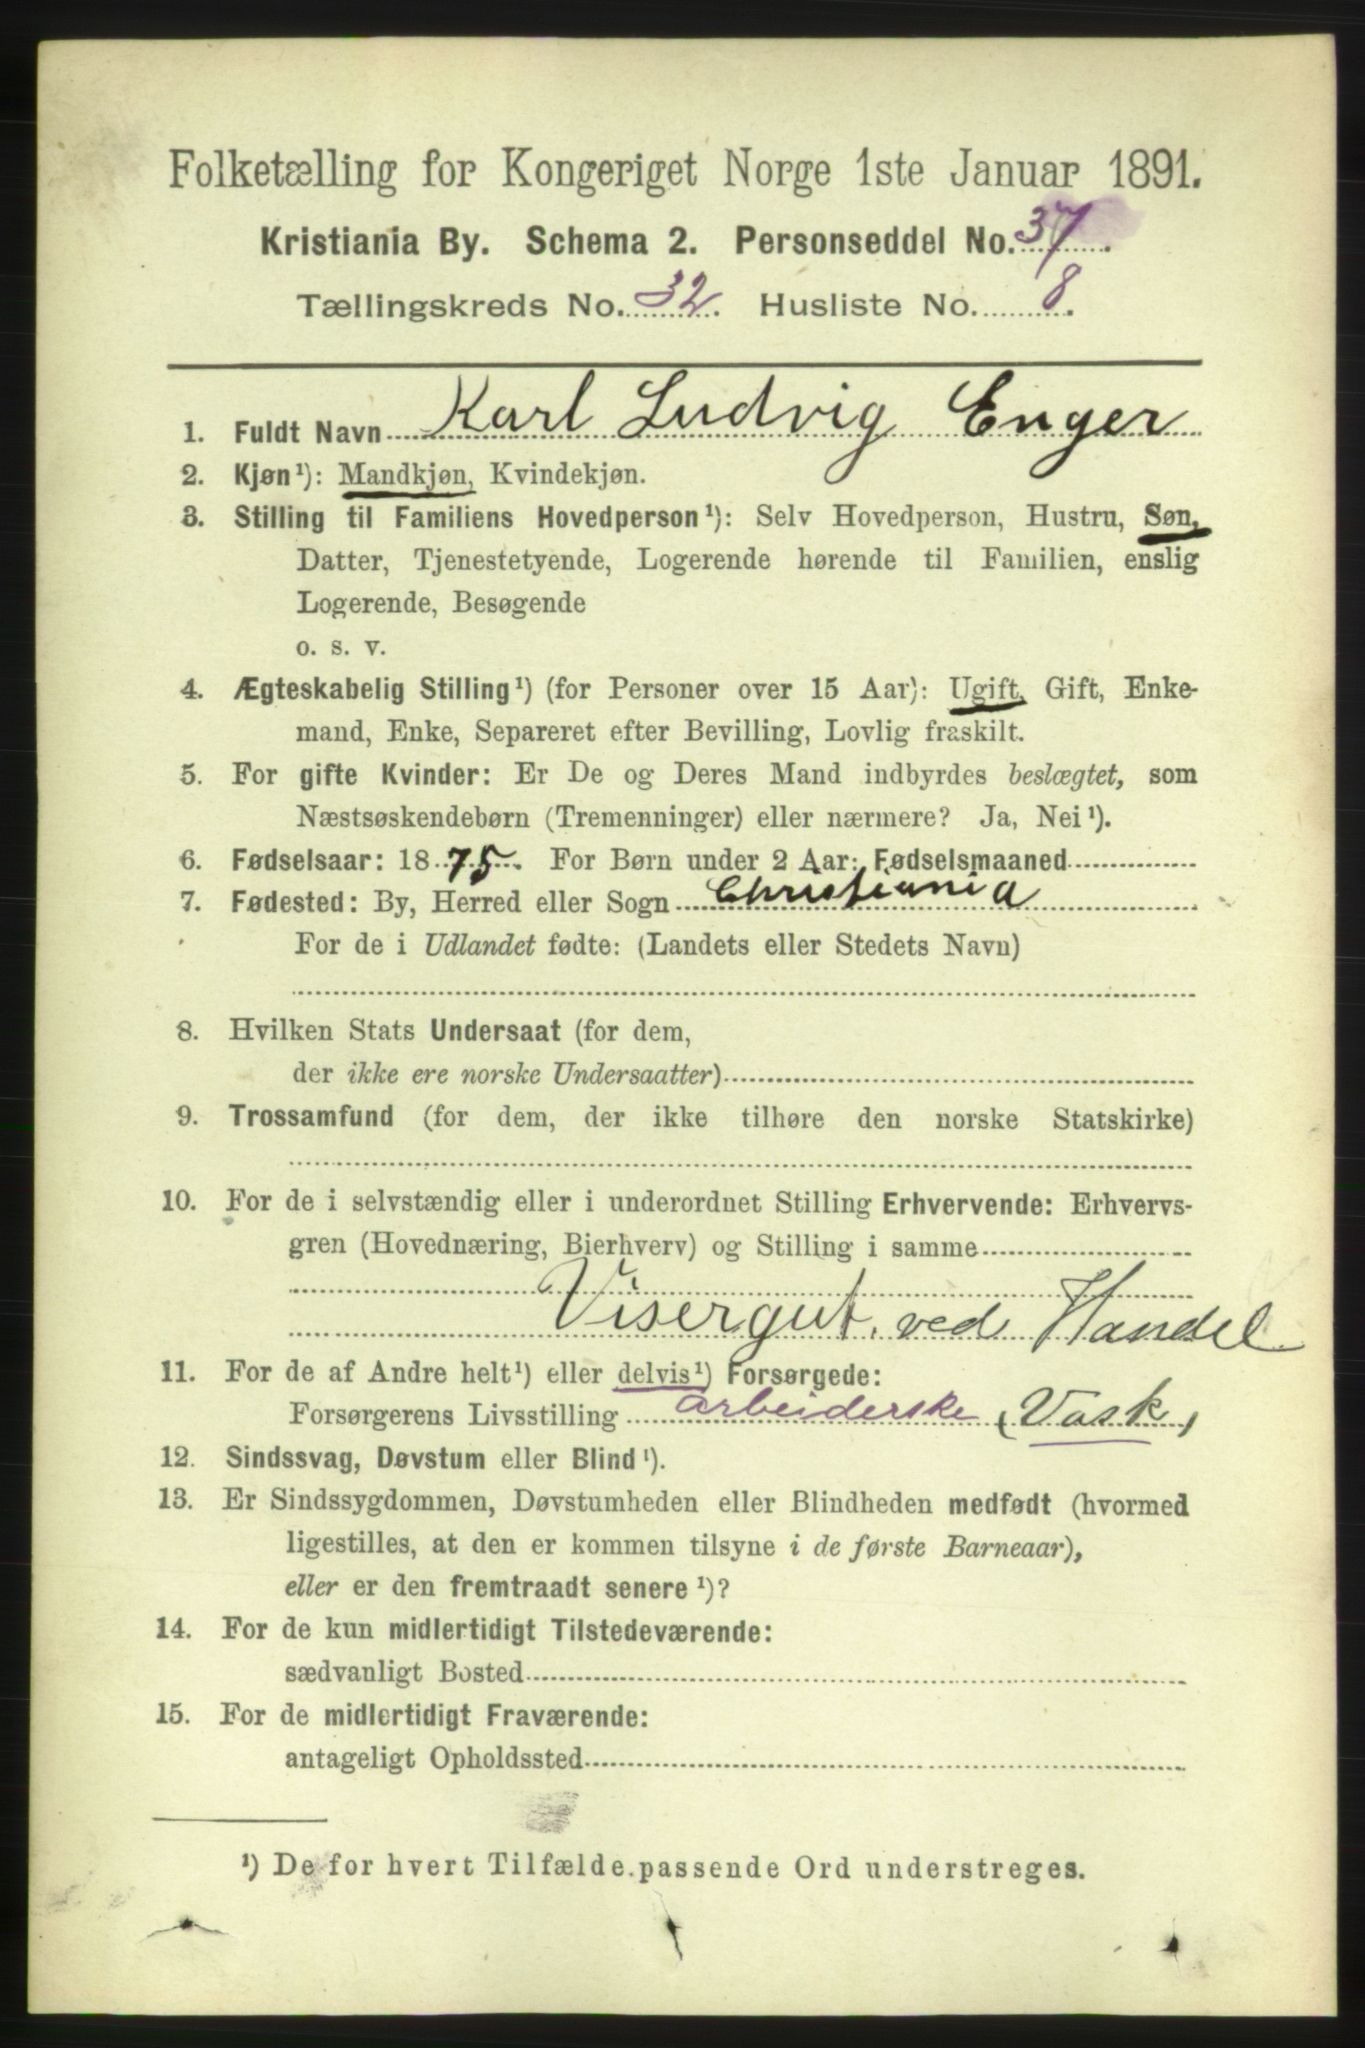 Folketælling for Kongeriget Norge 1ste Januar 1891.
Kristiania By. Schema 2. Personseddel No. 37.
Tællingskreds No. 32. Husliste No. 8.
1. Fuldt Navn Karl Ludvig Enger
2. Kjøn¹): Mandkjøn, Kvindekjøn.
3. Stilling til Familiens Hovedperson¹): Selv Hovedperson, Hustru, Søn,
Datter, Tjenestetyende, Logerende hørende til Familien, enslig
Logerende, Besøgende
o. s. v.
4. Ægteskabelig Stilling¹) (for Personer over 15 Aar): Ugift, Gift, Enke-
mand, Enke, Separeret efter Bevilling, Lovlig fraskilt.
5. For gifte Kvinder: Er De og Deres Mand indbyrdes beslægtet, som
Næstsøskendebørn (Tremenninger) eller nærmere? Ja, Nei¹).
6. Fødselsaar: 1875. For Børn under 2 Aar: Fødselsmaaned
7. Fødested: By, Herred eller Sogn Christiania
For de i Udlandet fødte: (Landets eller Stedets Navn)
8. Hvilken Stats Undersaat (for dem,
der ikke ere norske Undersaatter)
9. Trossamfund (for dem, der ikke tilhøre den norske Statskirke)
10. For de i selvstændig eller i underordnet Stilling Erhvervende: Erhvervs-
gren (Hovednæring, Bierhverv) og Stilling i samme
Visergut, ved Handel
11. For de af Andre helt¹) eller delvis¹) Forsørgede:
Forsørgerens Livsstilling arbeiderske (Vask)
12. Sindssvag, Døvstum eller Blind¹).
13. Er Sindssygdommen, Døvstumheden eller Blindheden medfødt (hvormed
ligestilles, at den er kommen tilsyne i de første Barneaar),
eller er den fremtraadt senere¹)?
14. For de kun midlertidigt Tilstedeværende:
sædvanligt Bosted
15. For de midlertidigt Fraværende:
antageligt Opholdssted
¹) De for hvert Tilfælde passende Ord understreges.